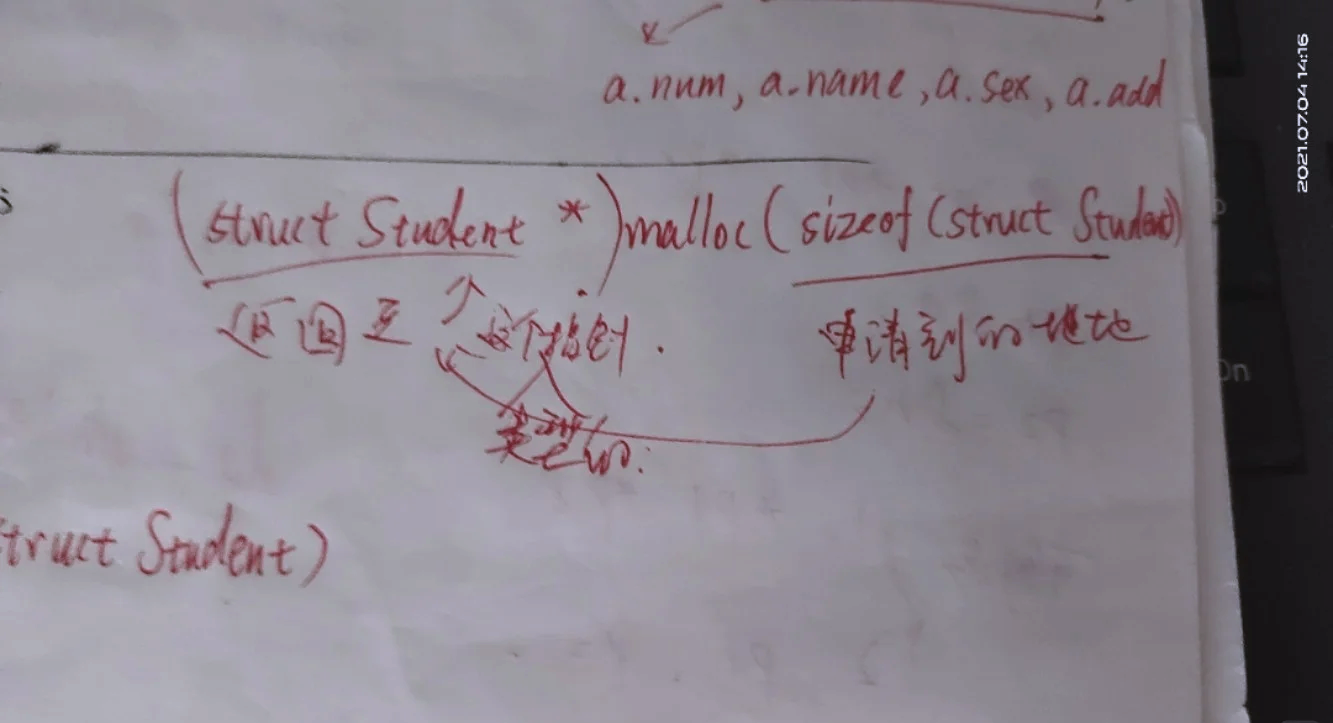 a.num, a.name, a.sex, a.add
(struct Student *)malloc(sizeof(struct Student)
返回至 这个指针.
申请到的地址
类型的.
truct Student)
2021.07.04 14:16
On